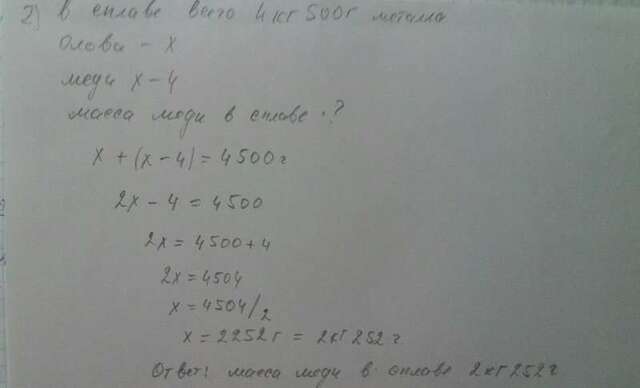 2) В сплаве всего 4кг 500г металла
Олова - х
меди х - 4
масса меди в сплаве - ?
х + (х - 4) = 4500г
2х - 4 = 4500
2х = 4500 + 4
2х = 4504
х = 4504/2
х = 2252г = 2кг 252г
Ответ: масса меди в сплаве 2кг 252г